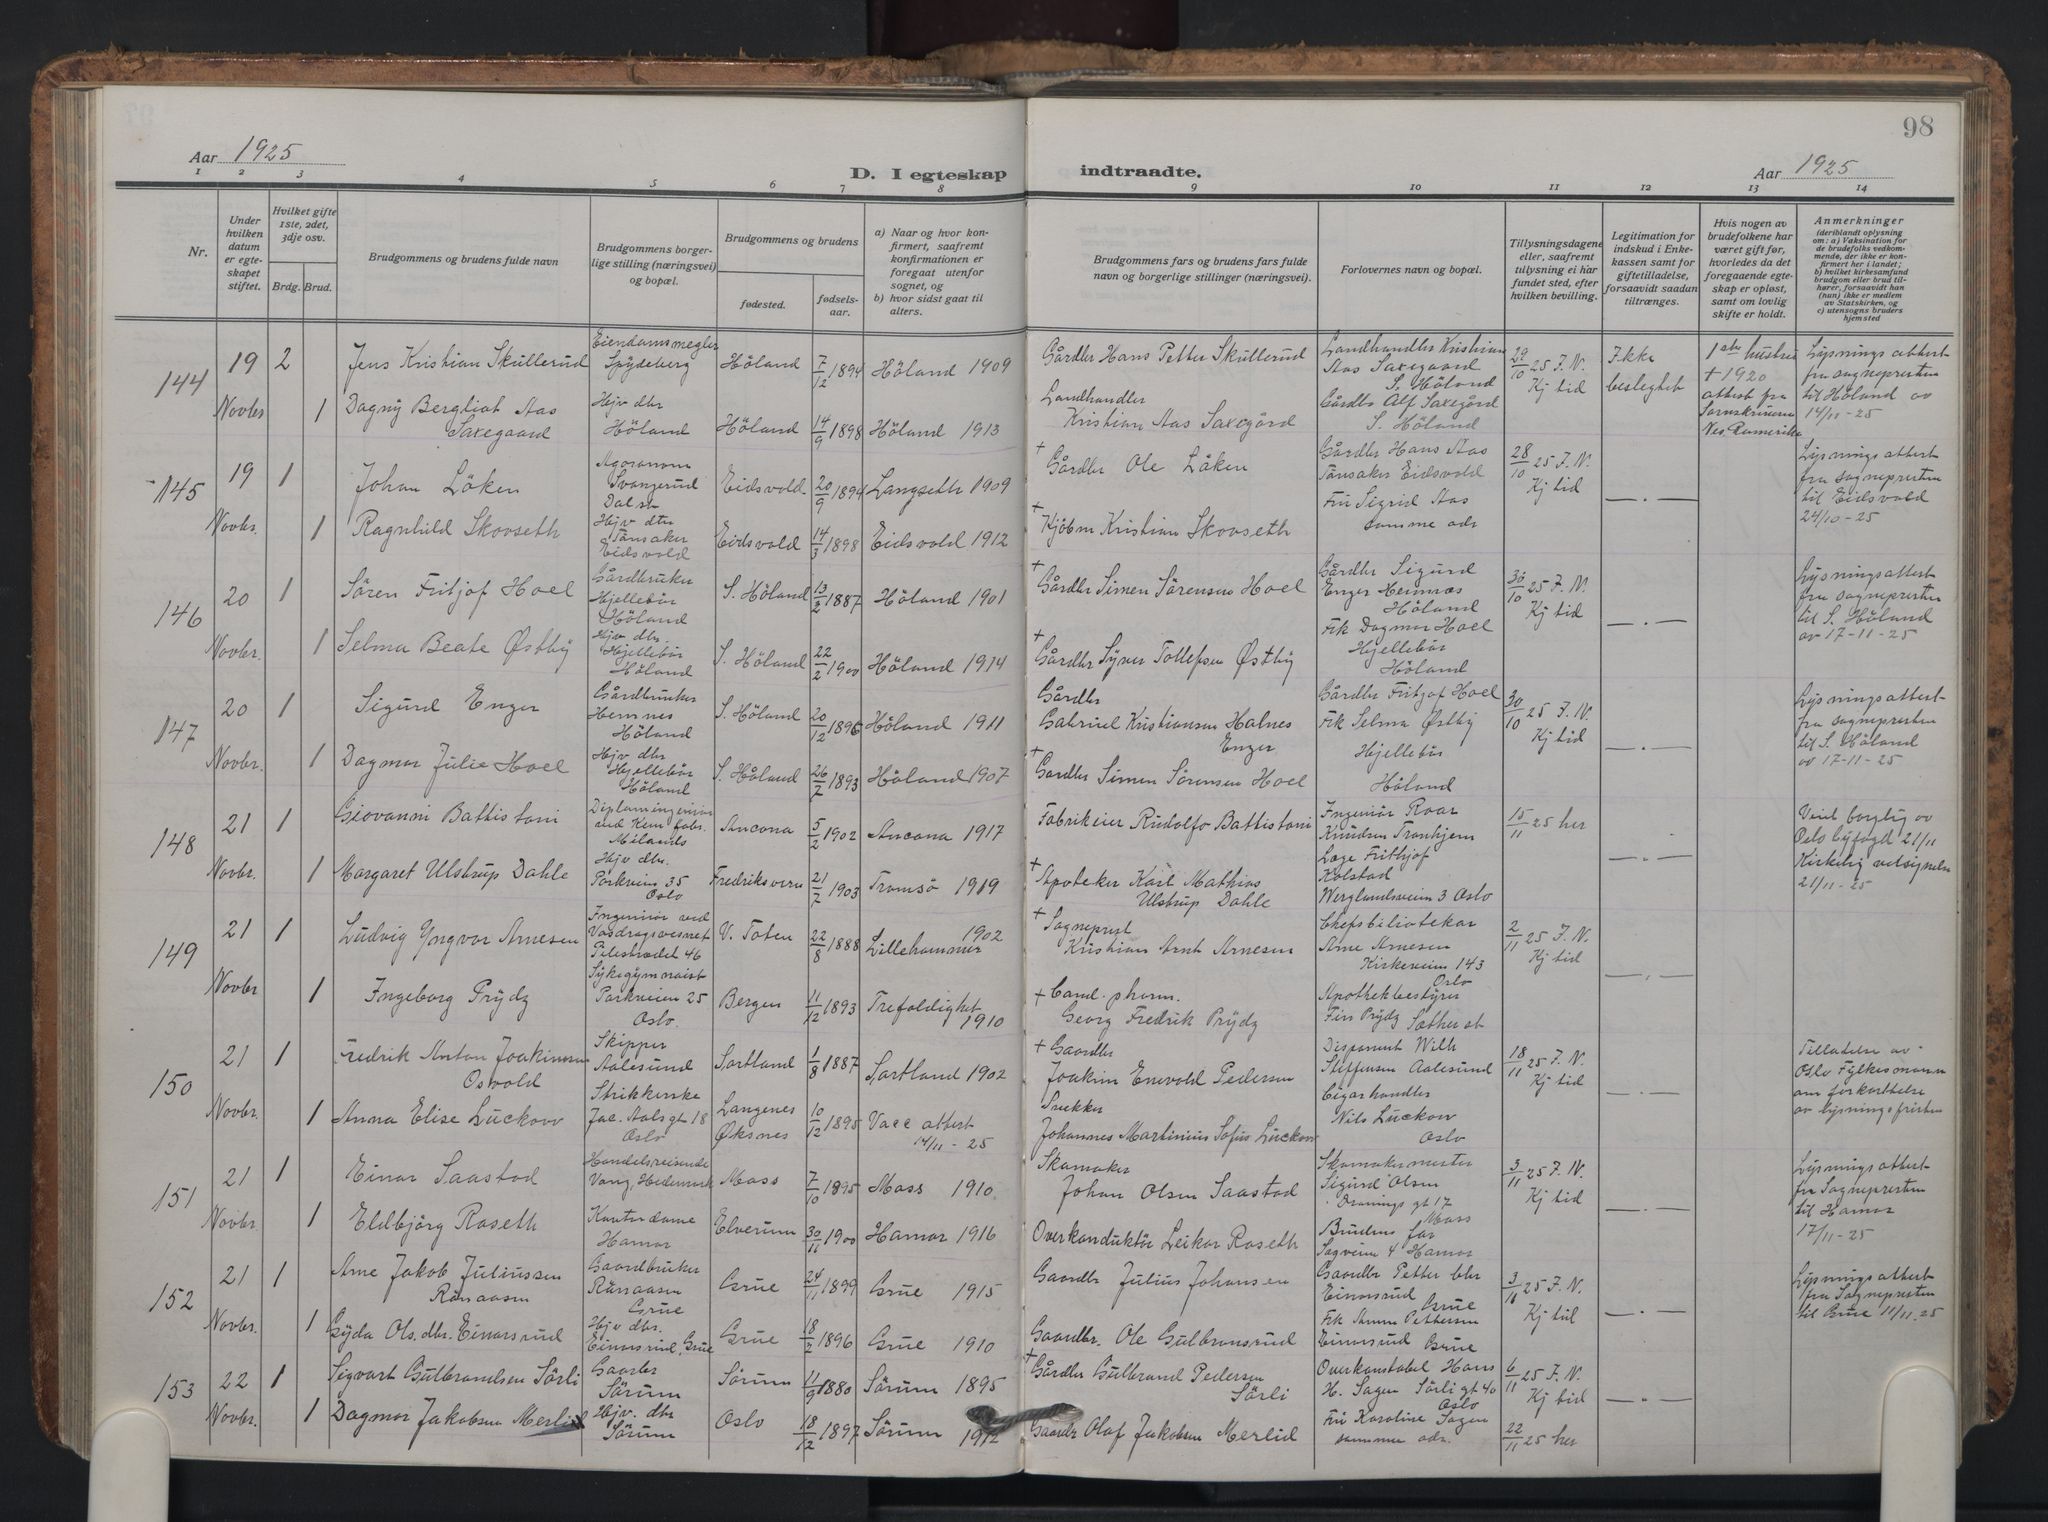 98
Aar 1925
D. I egteskap indtraadte.
Aar 1925
1 2 3 4 5 6 7 8 9 10 11 12 13 14
Nr.
Under hvilken datum er egteskapet stiftet.
Hvilket gifte 1ste, 2det, 3dje osv.
Brdg. Brud.
Brudgommens og brudens fulde navn
Brudgommens borgerlige stilling (næringsvei) og bopæl.
Brudgommens og brudens
fødested.
fødselsaar.
a) Naar og hvor konfirmert, saafremt konfirmationen er foregaat utenfor sognet, og
b) hvor sidst gaat til alters.
Brudgommens fars og brudens fars fulde navn og borgerlige stillinger (næringsvei).
Forlovernes navn og bopæl.
Tillysningsdagene eller, saafremt tillysning ei har fundet sted, efter hvilken bevilling.
Legitimation for indskud i Enkekassen samt for giftetilladelse, forsaavidt saadan tiltrænges.
Hvis nogen av brudefolkene har været gift før, hvorledes da det foregaaende egteskap er opløst, samt om lovlig skifte er holdt.
Anmerkninger (deriblandt oplysning om: a) Vaksination for de brudefolks vedkommende, der ikke er konfirmert her i landet; b) hvilket kirkesamfund brudgom eller brud tilhører, forsaavidt han (hun) ikke er medlem av Statskirken, og c) utensogns bruders hjemsted
144 19 2 Jens Kristian Skullerud Eiendomsmegler Spydeberg Höland 7/12 1894 Höland 1909 Gårdbr Hans Petter Skullerud Landhandler Kristian Aas Saxegaard S. Höland 29/10 25 F. N. Kj tid Ikke beslegtet 1ste hustru + 1920 attest fra Sorenskriveren Nes, Romerike Lysningsattest fra sognepresten til Höland av 14/11-25
Novbr 1 Dagny Bergliot Aas Saxegaard Hjv dtr Höland Höland 14/9 1898 Höland 1913 Landhandler Kristian Aas Saxegård Gårdbr Alf Saxegård S. Höland
145 19 1 Johan Löken Agronom Svangerud Dal st Eidsvold 20/9 1894 Langseth 1909 + Gårdbr Ole Löken Gårdbr Hans Aas Tönsaker Eidsvold 28/10 25 F. N. Kj tid Lysningsattest fra sognepresten til Eidsvold 24/10-25
Novbr. 1 Ragnhild Skovseth Hjv dtr Tönsaker Eidsvold Eidsvold 14/3 1898 Eidsvold 1912 + Kjöbm Kristian Skovseth Fru Sigrid Aas samme adr
146 20 1 Sören Fritjof Hoel Gårdbruker Hjellebör Höland S. Höland 13/2 1887 Höland 1901 + Gårdbr Simen Sörensen Hoel Gårdbr Sigurd Enger Hemnes Höland 30/10 25 F. N. Kj tid Lysningsattest fra sognepresten til S. Höland av 17-11-25
Novbr. 1 Selma Beate Østby Hjv dtr. Hjellebör Höland S. Höland 22/2 1900 Höland 1914 + Gårdbr Syver Tollefsen Østby Frk Dagmar Hoel Hjellebör Höland
147 20 1 Sigurd Enger Gårdbruker Hemnes Höland S. Höland 20/12 1896 Höland 1911 Gårdbr Gabriel Kristiansen Halnes Enger Gårdbr Fritjof Hoel 30/10 25 F. N. Kj tid Lysningsattest fra sognepresten til S. Höland av 17-11-25
Novbr. 1 Dagmar Julie Hoel Hjv dtr Hjellebör Höland S. Höland 26/7 1893 Höland 1907 + Gardbr Simen Sörensen Hoel Frk Selma Østby Hjellebör Höland
148 21 1 Giovanni Battistoni Diplomingeniör ved Kem fabr. Milano Ancona 5/2 1902 Ancona 1917 Fabrikeier Rudolfo Battistoni Ingeniör Roar Knudsen Tronhjem 15/11 25 her Viet borglig av Oslo byfogd 21/11 Kirkelig velsignelse 21/11-25
Novbr. 1 Margaret Ulstrup Dahle Hjv dtr. Parkveien 35 Oslo Fredriksvern 21/7 1903 Tromsö 1919 + Apoteker Karl Mathias Ulstrup Dahle Læge Frithjof Kolstad Werglandsveien 3 Oslo
149 21 1 Ludvig Yngvar Arnesen Ingeniör ved Vasdragsvesenet Pilestrædet 46 V. Toten 22/8 1888 Lillehammer 1902 + Sogneprest Kristian Arnt Arnesen Chefsbibliotekar Arne Arnesen Kirkeveien 143 Oslo 2/11 25 F. N. Kj tid
Novbr 1 Ingeborg Prydz Sykegymnast Parkveien 25 Oslo. Bergen 11/12 1893 Trefoldighet 1910 + Cand. pharm. Georg Fredrik Prydz Apothekbestyrer Finn Prydz Sæther st
150 21 1 Fredrik Anton Joakimsen Osvold Skipper Aalesund Sortland 1/8 1887 Sortland 1902 + Gaardbr Joakim Enevold Pedersen Disponent Wilh Steffensen Aalesund 18/11 25 F. N. Kj tid Tilladelse av Oslo Fylkesmann om forkortelse av lysningsfristen
Novbr. 1 Anna Elise Luckow Strikkerske Jac. Aals gt 18 Oslo Langenes Øksnes 10/12 1895 Vacc attest 14/11-25 Snekker Johannes Martinius Sofus Luckow Cigarhandler Nils Luckow Oslo
151 21 1 Einar Saastad Handelsreisende Vang, Hedemark Moss 7/10 1895 Moss 1910 Skomaker Johan Olsen Saastad Skomakermester Sigurd Olsen Dronnings gt 17 Moss 3/11 25 F. N. Kj tid Lysningsattest fra Sognepresten til Hamar 17/11-25
Novbr. 1 Eldbjörg Roseth Kontordame Hamar Elverum 30/11 1900 Hamar 1916 Overkonduktör Leikar Roseth Brudens far Sagveien 4 Hamar
152 21 1 Arne Jakob Juliussen Rånaasen Gaardbruker Rånaasen Grue Grue 24/11 1899 Grue 1915 Gaardbr Julius Johansen Gaardbr Petter Einarsrud Grue 3/11 25 F. N. Kj tid Lysningsattest fra Sognepresten til Grue 11/11.25
Novbr. 1 Gyda Ols.dtr. Einarsrud Hjv dtr. Einarsrud, Grue Grue 18/2 1896 Grue 1910 Gaardbr. Ole Gulbransrud Frk Anna Pettersen Einarsrud Grue
153 22 1 Sigvart Gulbrandsen Sörli Gaardbr Sörum Sörum 11/9 1880 Sörum 1895 + Gårdbr Gulbrand Pedersen Sörli Overkonstabel Hans H. Sagen Sörligt 40 Oslo 6/11 25 F. N. Kj tid
Novbr. 1 Dagmar Jakobsen Merlid Hjv. dtr Sörum Oslo 18/12 1897 Sörum 1912 Gaardbr Olaf Jakobsen Merlid Fru Karoline Sagen samme adr. 22/11 25 her